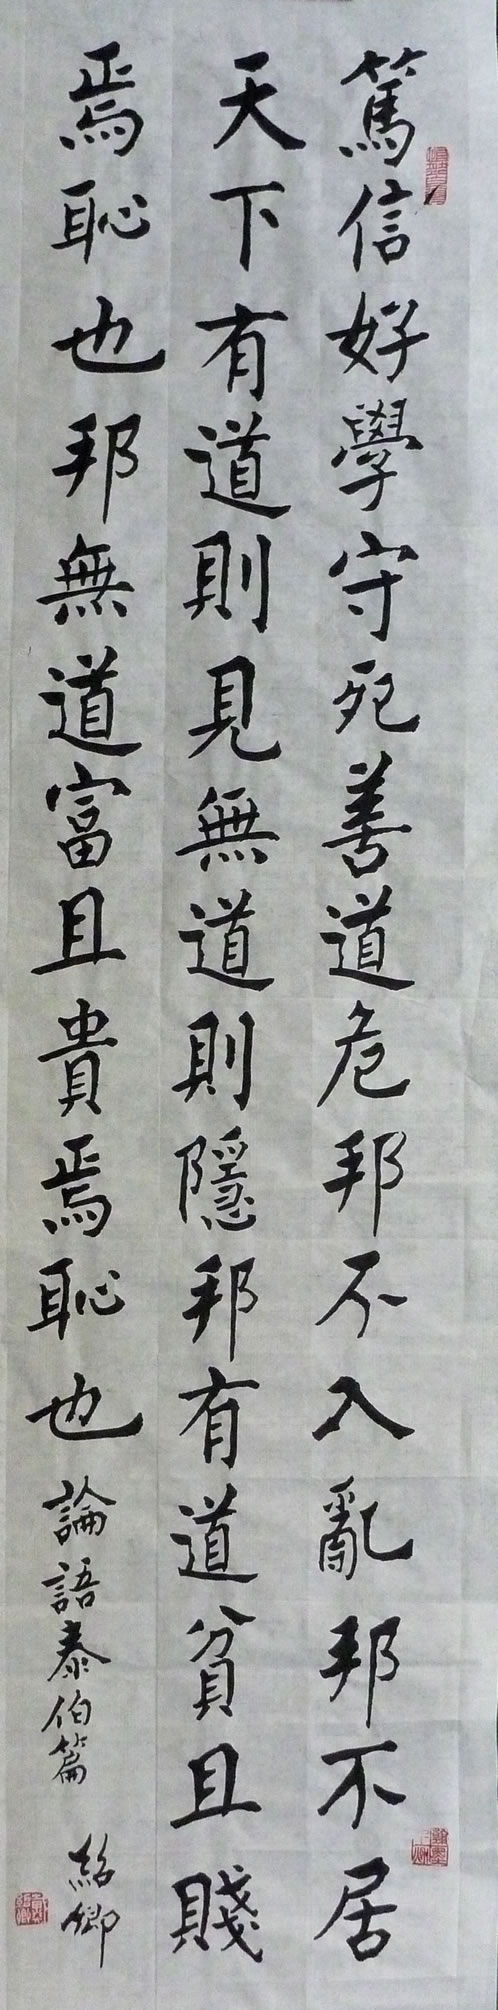 篤信好學守死善道危邦不入亂邦不居
天下有道則見無道則隱邦有道貧且賤
焉恥也邦無道富且貴焉恥也論語泰伯篇
紹卿